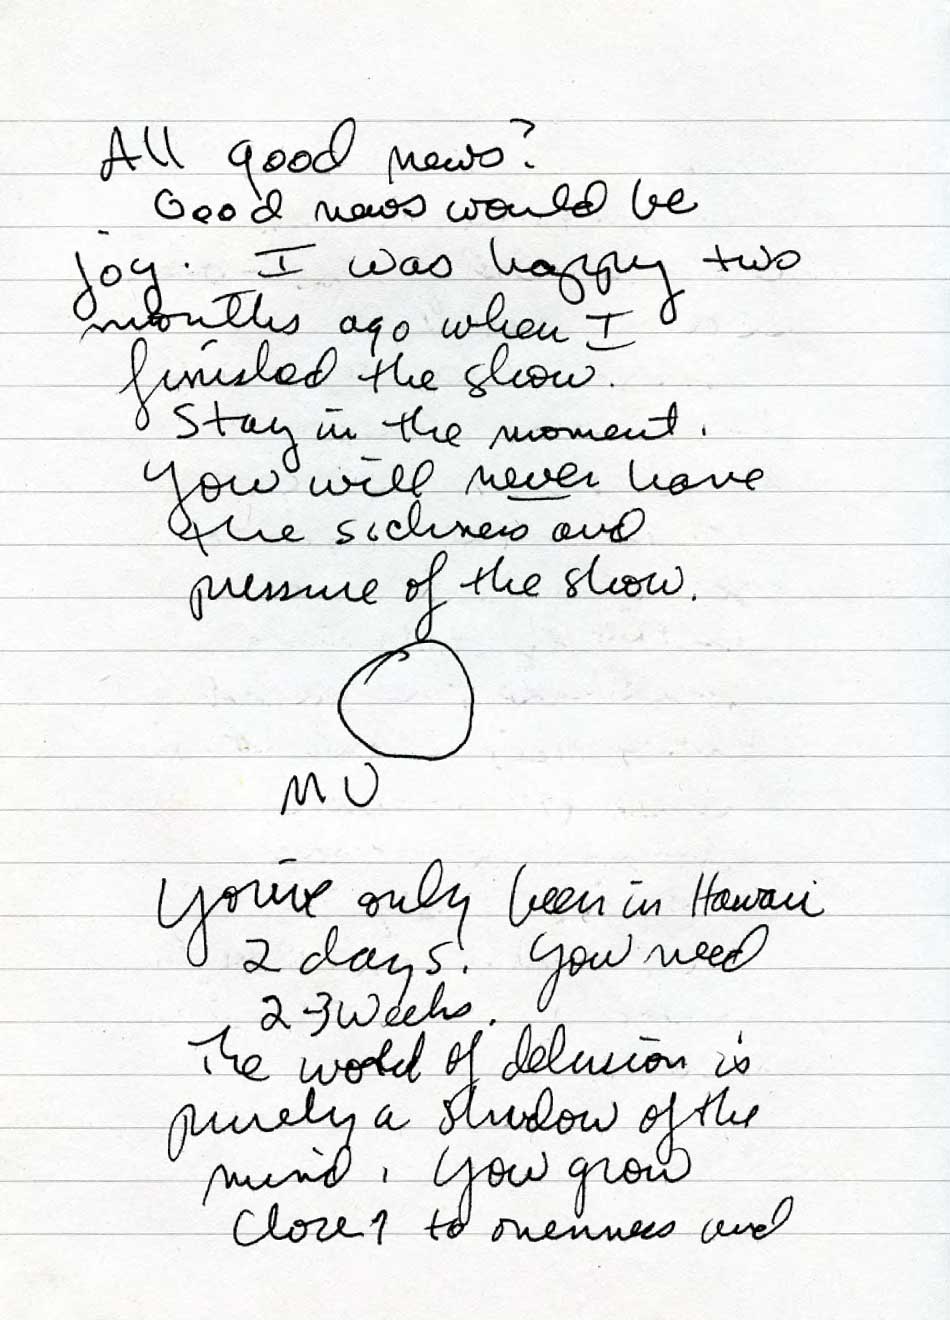 All good news?
Good news would be
joy. I was happy two
months ago when I
finished the show.
Stay in the moment.
You will never have
the sickness and
pressure of the show.
MU
You've only been in Hawaii
2 days. You need
2-3 weeks.
The world of delusion is
purely a shadow of the
mind. You grow
closer to oneness and